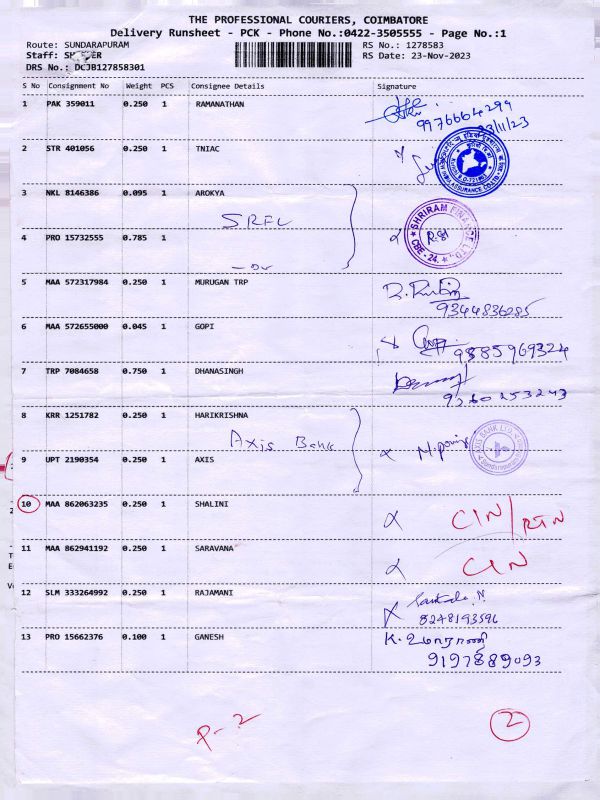 THE PROFESSIONAL COURIERS, COIMBATORE
Delivery Runsheet - PCK - Phone No.:0422-3505555 - Page No.:1
Route: SUNDARAPURAM
RS No.: 1278583
Staff:
RS Date: 23-Nov-2023
DRS No.: DCJB127858301
S No Consignment No Weight PCS Consignee Details Signature
1 PAK 359011 0.250 1 RAMANATHAN
9976664299
23/11/23
2 STR 401056 0.250 1 TNIAC
3 NKL 8146386 0.095 1 AROKYA
SRFL
SHRIRAM FINANCE LTD.,
CBE - 24.
4 PRO 15732555 0.785 1
5 MAA 572317984 0.250 1 MURUGAN TRP
9344836285
6 MAA 572655000 0.045 1 GOPI
9385969324
7 TRP 7084658 0.750 1 DHANASINGH
9360253243
8 KRR 1251782 0.250 1 HARIKRISHNA
Axis Bank
AXIS BANK LTD.
9 UPT 2190354 0.250 1 AXIS
10 MAA 862063235 0.250 1 SHALINI
CIN/RTN
11 MAA 862941192 0.250 1 SARAVANA
CIN
12 SLM 333264992 0.250 1 RAJAMANI
8248193596
13 PRO 15662376 0.100 1 GANESH K. உமாராணி
9197889093
P-2
2